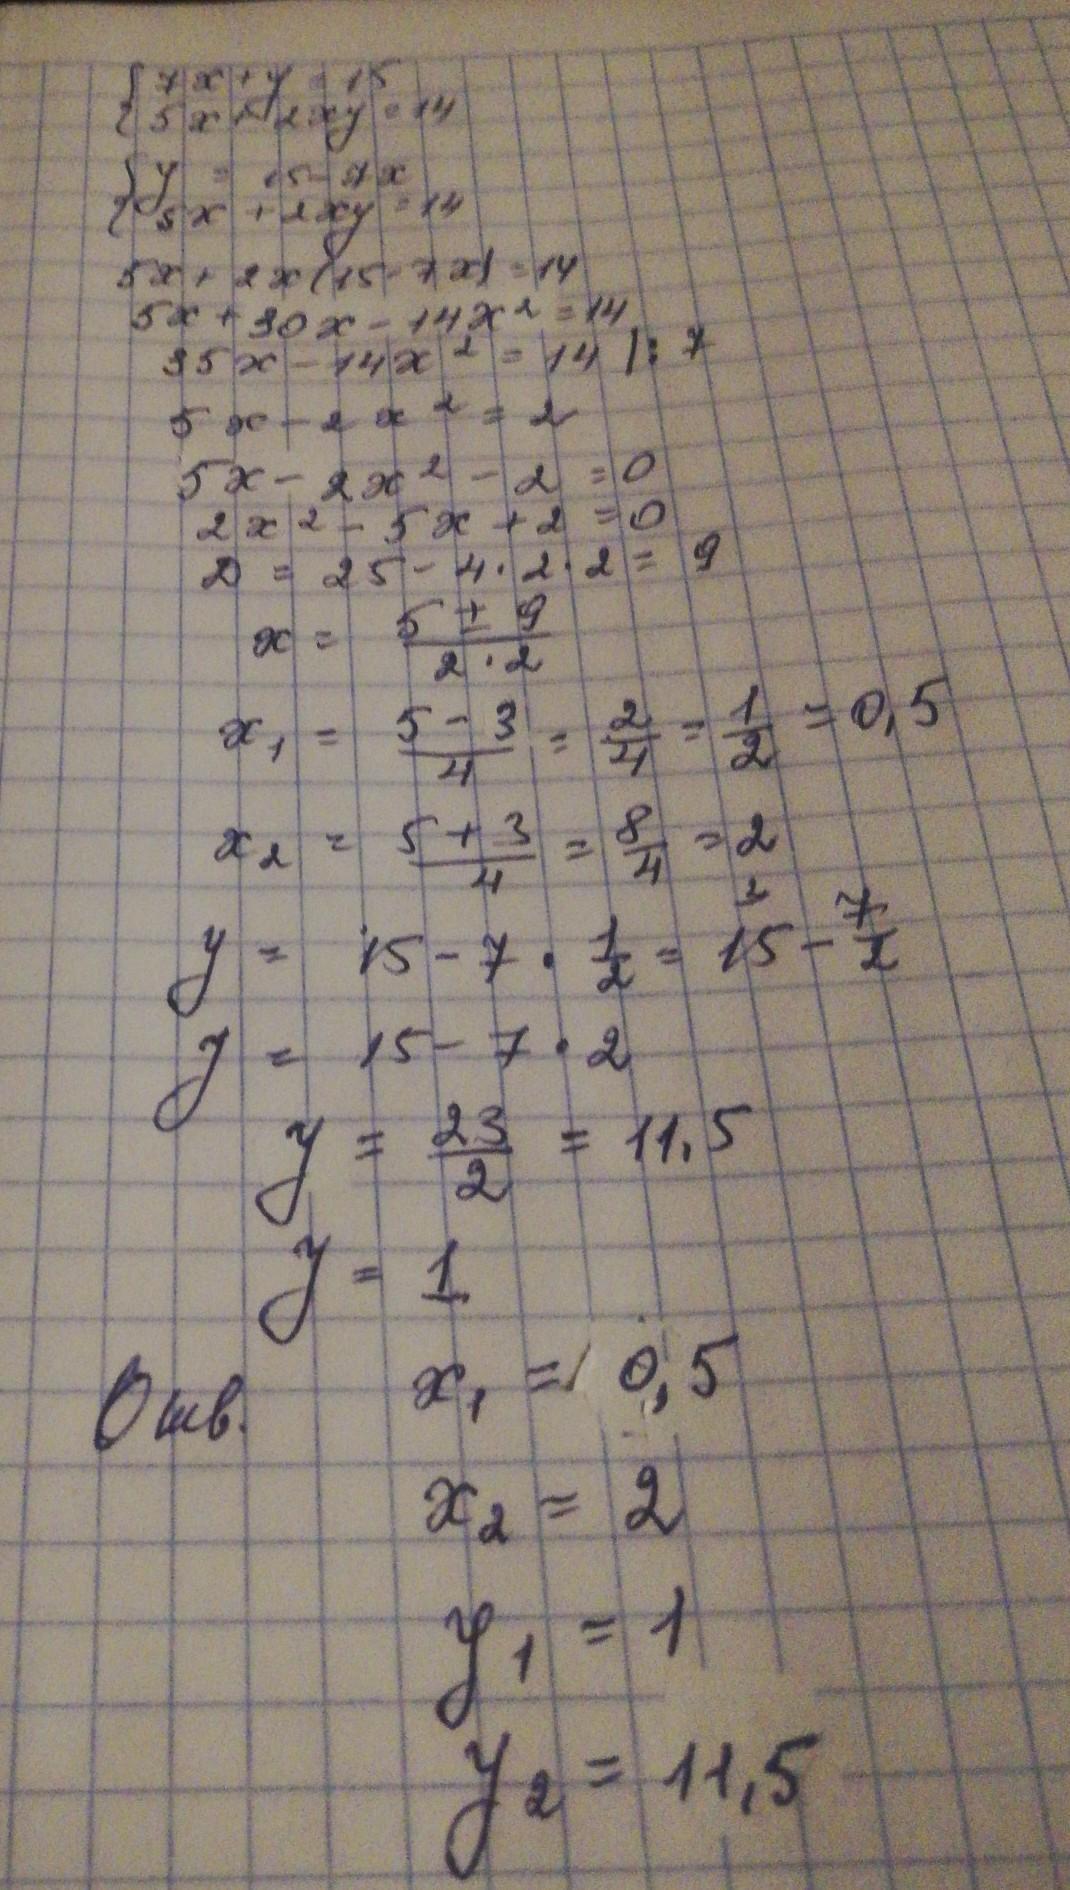 { 7x + y = 15
{ 5x + 2xy = 14
{ y = 15 - 7x
{ 5x + 2xy = 14
5x + 2x(15 - 7x) = 14
5x + 30x - 14x² = 14
35x - 14x² = 14 |: 7
5x - 2x² = 2
5x - 2x² - 2 = 0
2x² - 5x + 2 = 0
D = 25 - 4 · 2 · 2 = 9
x = (5 ± 9)/(2 · 2)
x₁ = (5 - 3)/4 = 2/4 = 1/2 = 0,5
x₂ = (5 + 3)/4 = 8/4 = 2
y = 15 - 7 · 1/2 = 15 - 7/2
y = 15 - 7 · 2
y = 23/2 = 11,5
y = 1
Отв. x₁ = 0,5
x₂ = 2
y₁ = 1
y₂ = 11,5